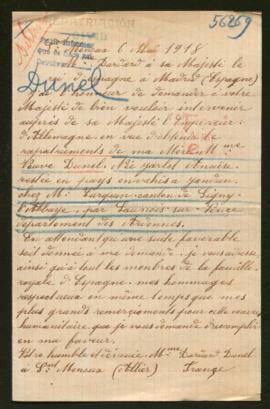 56269
REPATRIACIÓN
Monsaux 6 Mai 1918
Mme Dardard à sa Majesté le
roi d'Espagne à Madrid (Espagne)
Dunel
J'ai l'honneur de demander à votre
Majesté de bien vouloir intervenir
auprès de sa Majesté l'Empereur
d'Allemagne en vue d'obtenir le
rapatriement de ma Mère Mme
Veuve Dunel. Née
restée en pays envahis à
chez Mr canton de Signy
l'Abbaye, par Launois sur Vence
département des Ardennes.
En attendant qu'une suite favorable
soit donnée à ma demande, je vous adresse,
ainsi qu'à tout les membres de la famille
royale d'Espagne, mes hommages
respectueux en même temps que mes
plus grands remerciements pour cette œuvre
humanitaire que je vous demande d'accomplir
en ma faveur.
Votre humble et dévouée Mme Dunel
à St (Allier) France